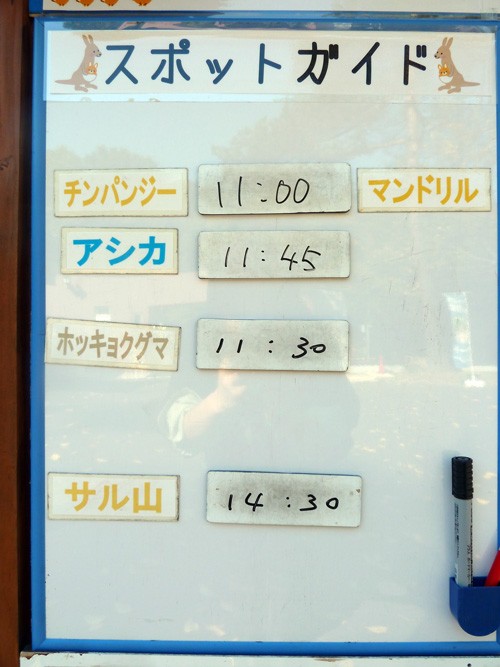 スポットガイド
チンパンジー 11:00 マンドリル
アシカ 11:45
ホッキョクグマ 11:30
サル山 14:30